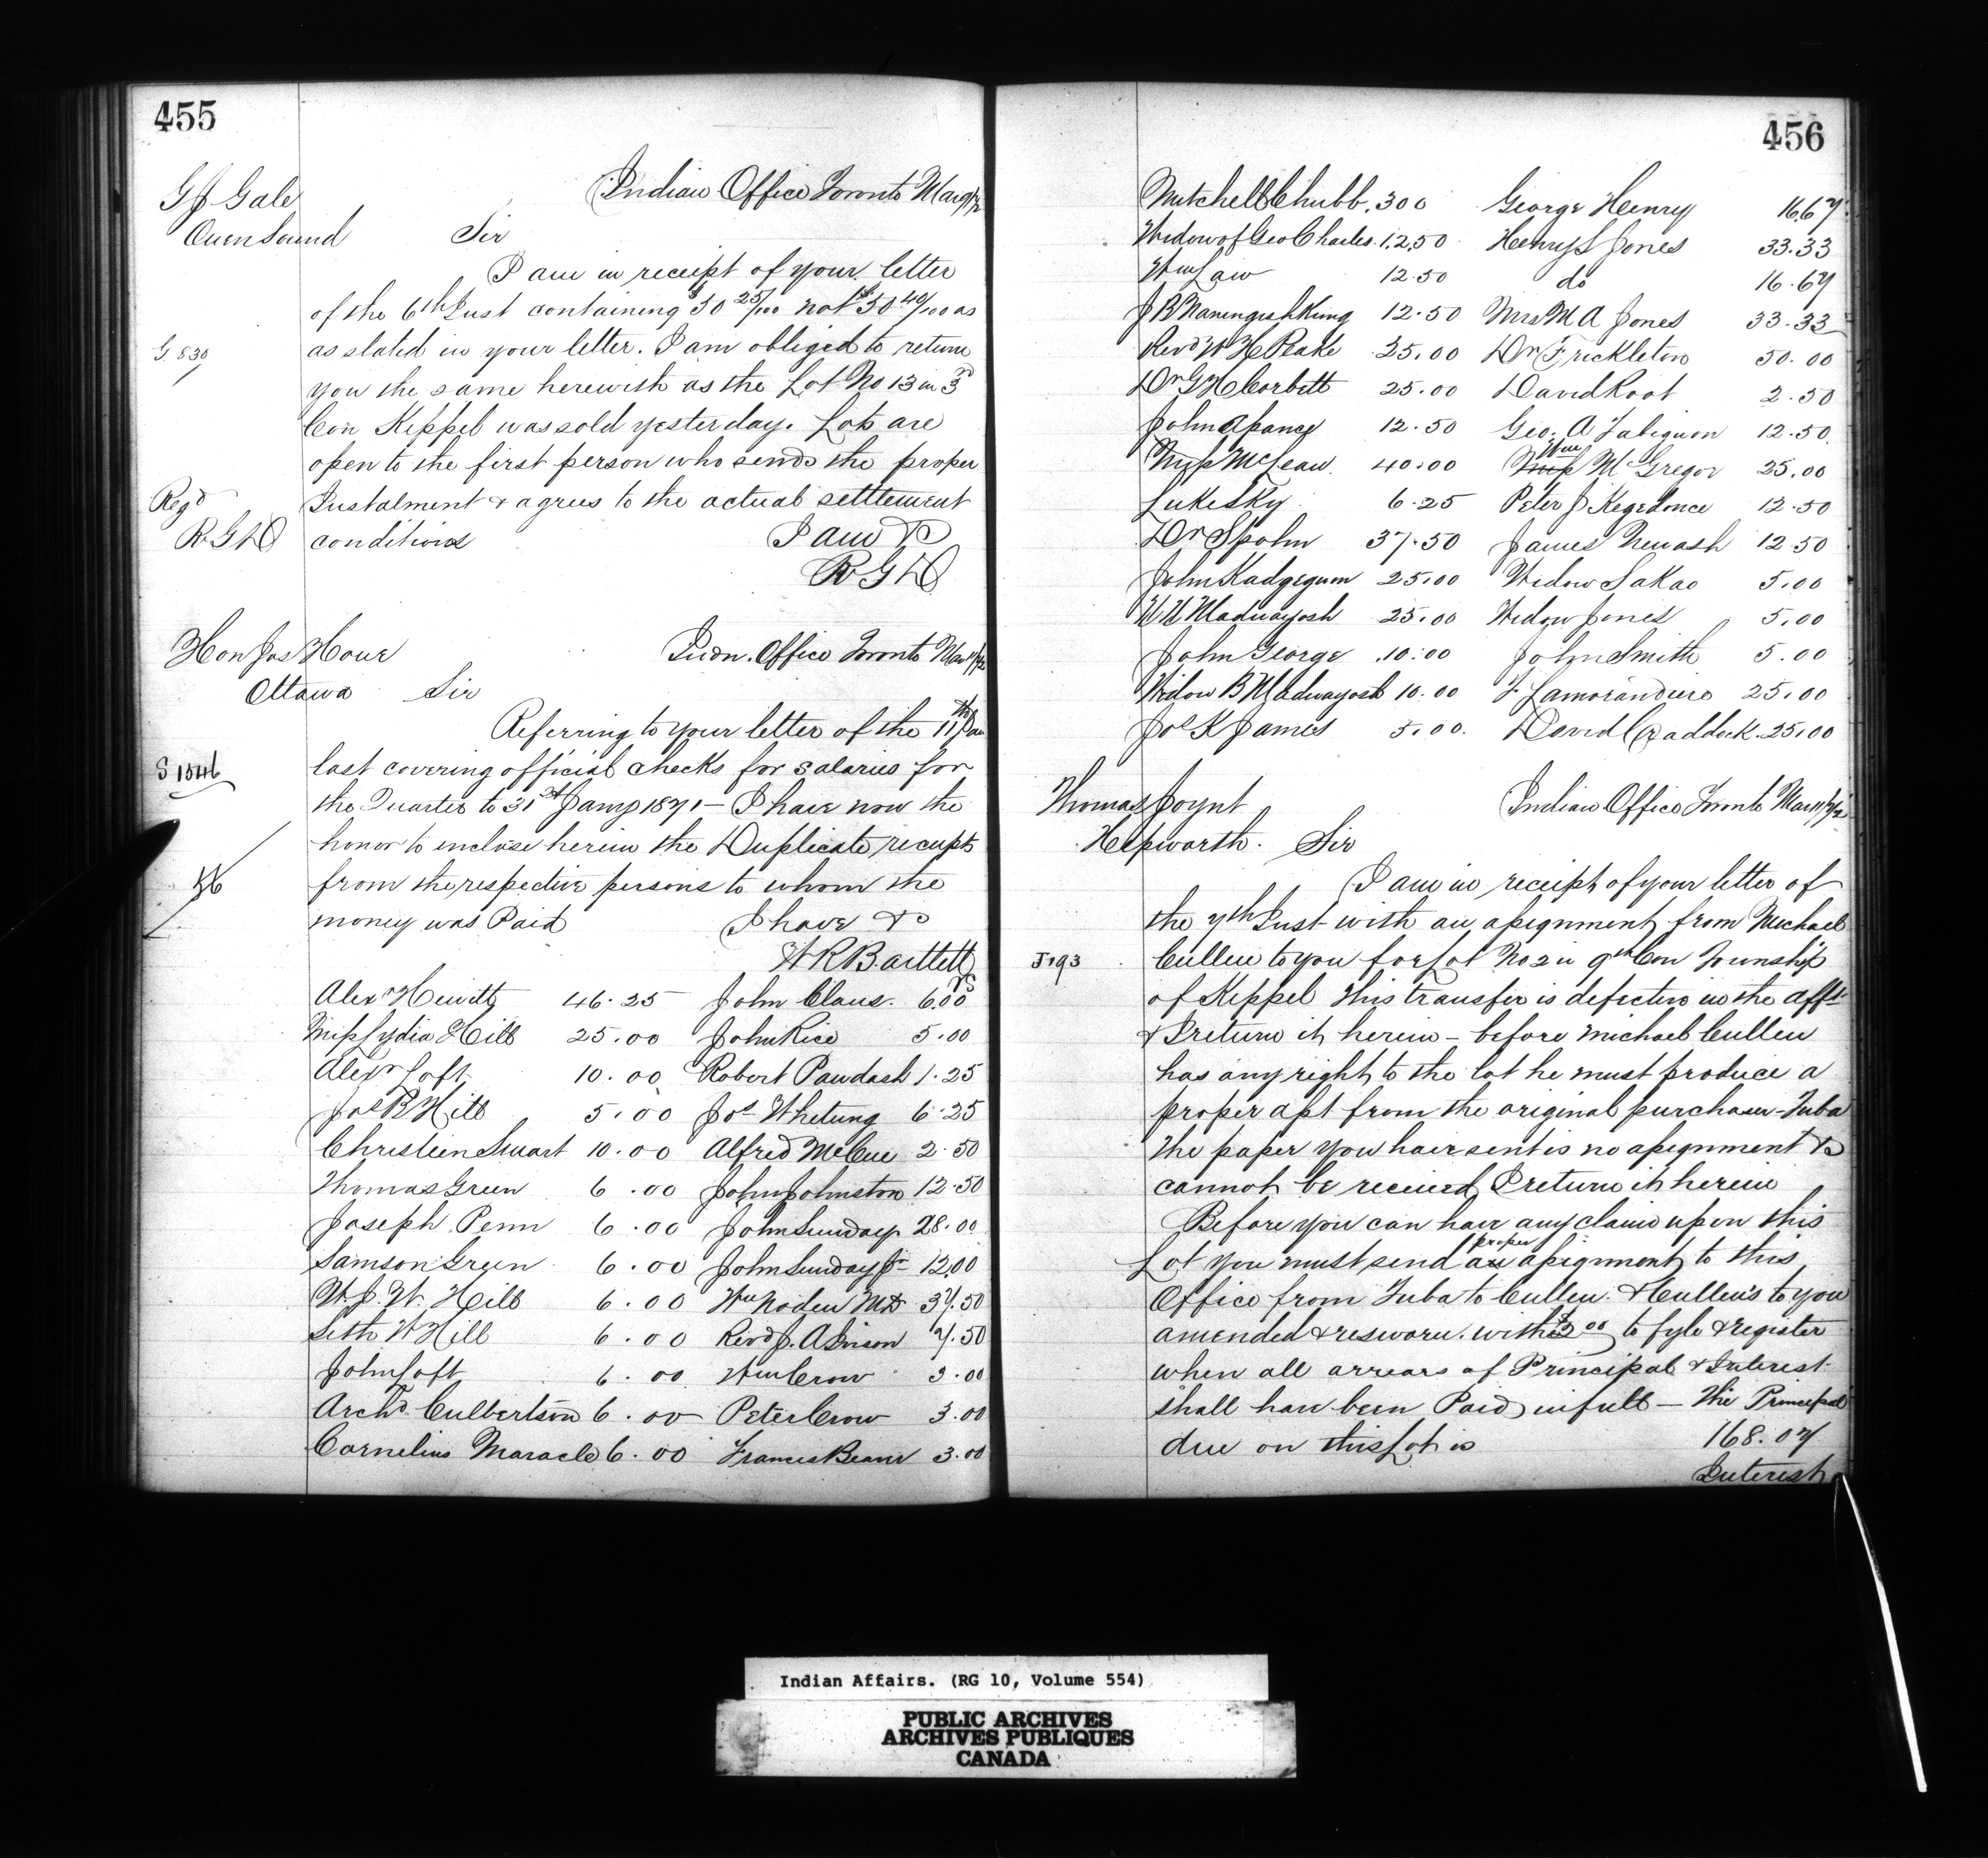 455
G J Gale
Owen Sound
Indian Office Toronto Mar 9/72
Sir
I am in receipt of your letter
of the 6th Inst containing $50 25/100 not $50 40/100 as
G 830
as stated in your letter. I am obliged to return
you the same herewith as the Lot No 13 in 3rd
Con Keppel was sold yesterday. Lots are
open to the first person who sends the proper
Regd
Instalment & agrees to the actual settlement
RGD
conditions
I am &c
RGD
Hon Jos Howe
Ottawa
Indn. Office Toronto Mar 11/72
Sir
Referring to your letter of the 11th Jan
S 1546
last covering official checks for salaries for
the Quarter to 31st Jany 1871 — I have now the
honor to inclose herein the Duplicate receipts
56
from the respective persons to whom the
money was Paid
I have &c
W R Bartlett
Alexr Hewitt 46.25 John Claus. 6.00
Miss Lydia Hill 25.00 John Rice 5.00
Alexr Loft 10.00 Robert Paudash 1.25
Jos B Hill 5.00 Jos Whetung 6.25
Christeen Smart 10.00 Alfred McCue 2.50
Thomas Green 6.00 John Johnston 12.50
Joseph Penn 6.00 John Sunday 28.00
Samson Green 6.00 John Sunday Jr 12.00
W. J. W. Hill 6.00 Wm Noden MD 37.50
Seth W Hill 6.00 Revd J. A Ivison 7.50
John Loft 6.00 Wm Crow 3.00
Archd Culbertson 6.00 Peter Crow 3.00
Cornelius Maracle 6.00 Francis Beaver 3.00
456
Mitchell Chubb. 300 George Henry 16.67
Widow of Geo Charles. 12.50 Henry L Jones 33.33
Wm Law 12.50 do 16.67
J B Naningishkung 12.50 Mrs M A Jones 33.33
Revd W H Peake 25.00 Dr Frickleton 50.00
Dr G H Corbett 25.00 David Root 2.50
John Assance 12.50 Geo. A Tabiguon 12.50
Miss McLean 40.00 Wm McGregor 25.00
Luke Sky 6.25 Peter J Kegedonce 12.50
Dr Spohn 37.50 James Newash 12.50
John Kadgegum 25.00 Widow Sakao 5.00
W W Madwayosh 25.00 Widow Jones 5.00
John George 10.00 John Smith 5.00
Widow B Madwayosh 10.00 F Lamorandiere 25.00
Jos K James 5.00. David Craddock. 25.00
Thomas Joynt
Hepworth.
Indian Office Toronto Mar 11/72
Sir
I am in receipt of your letter of
the 7th Inst with an assignment from Michael
J 193
Cullen to you for Lot No 2 in 9th Con Township
of Keppel This transfer is defective in the afft
& I return it herein — before Michael Cullen
has any right to the lot he must produce a
proper asst from the original purchaser — Tuba
The paper you have sent is no assignment &
cannot be received, I return it herein
Before you can have any claim upon this
Lot you must send a proper assignment to this
Office from Tuba to Cullen & Cullen's to you
amended & resworn. with $2 00 to fyle & register
when all arrears of Principal & Interest
shall have been Paid in full — The Principal
due on this Lot is 168.07
Interest
Indian Affairs. (RG 10, Volume 554)
PUBLIC ARCHIVES
ARCHIVES PUBLIQUES
CANADA